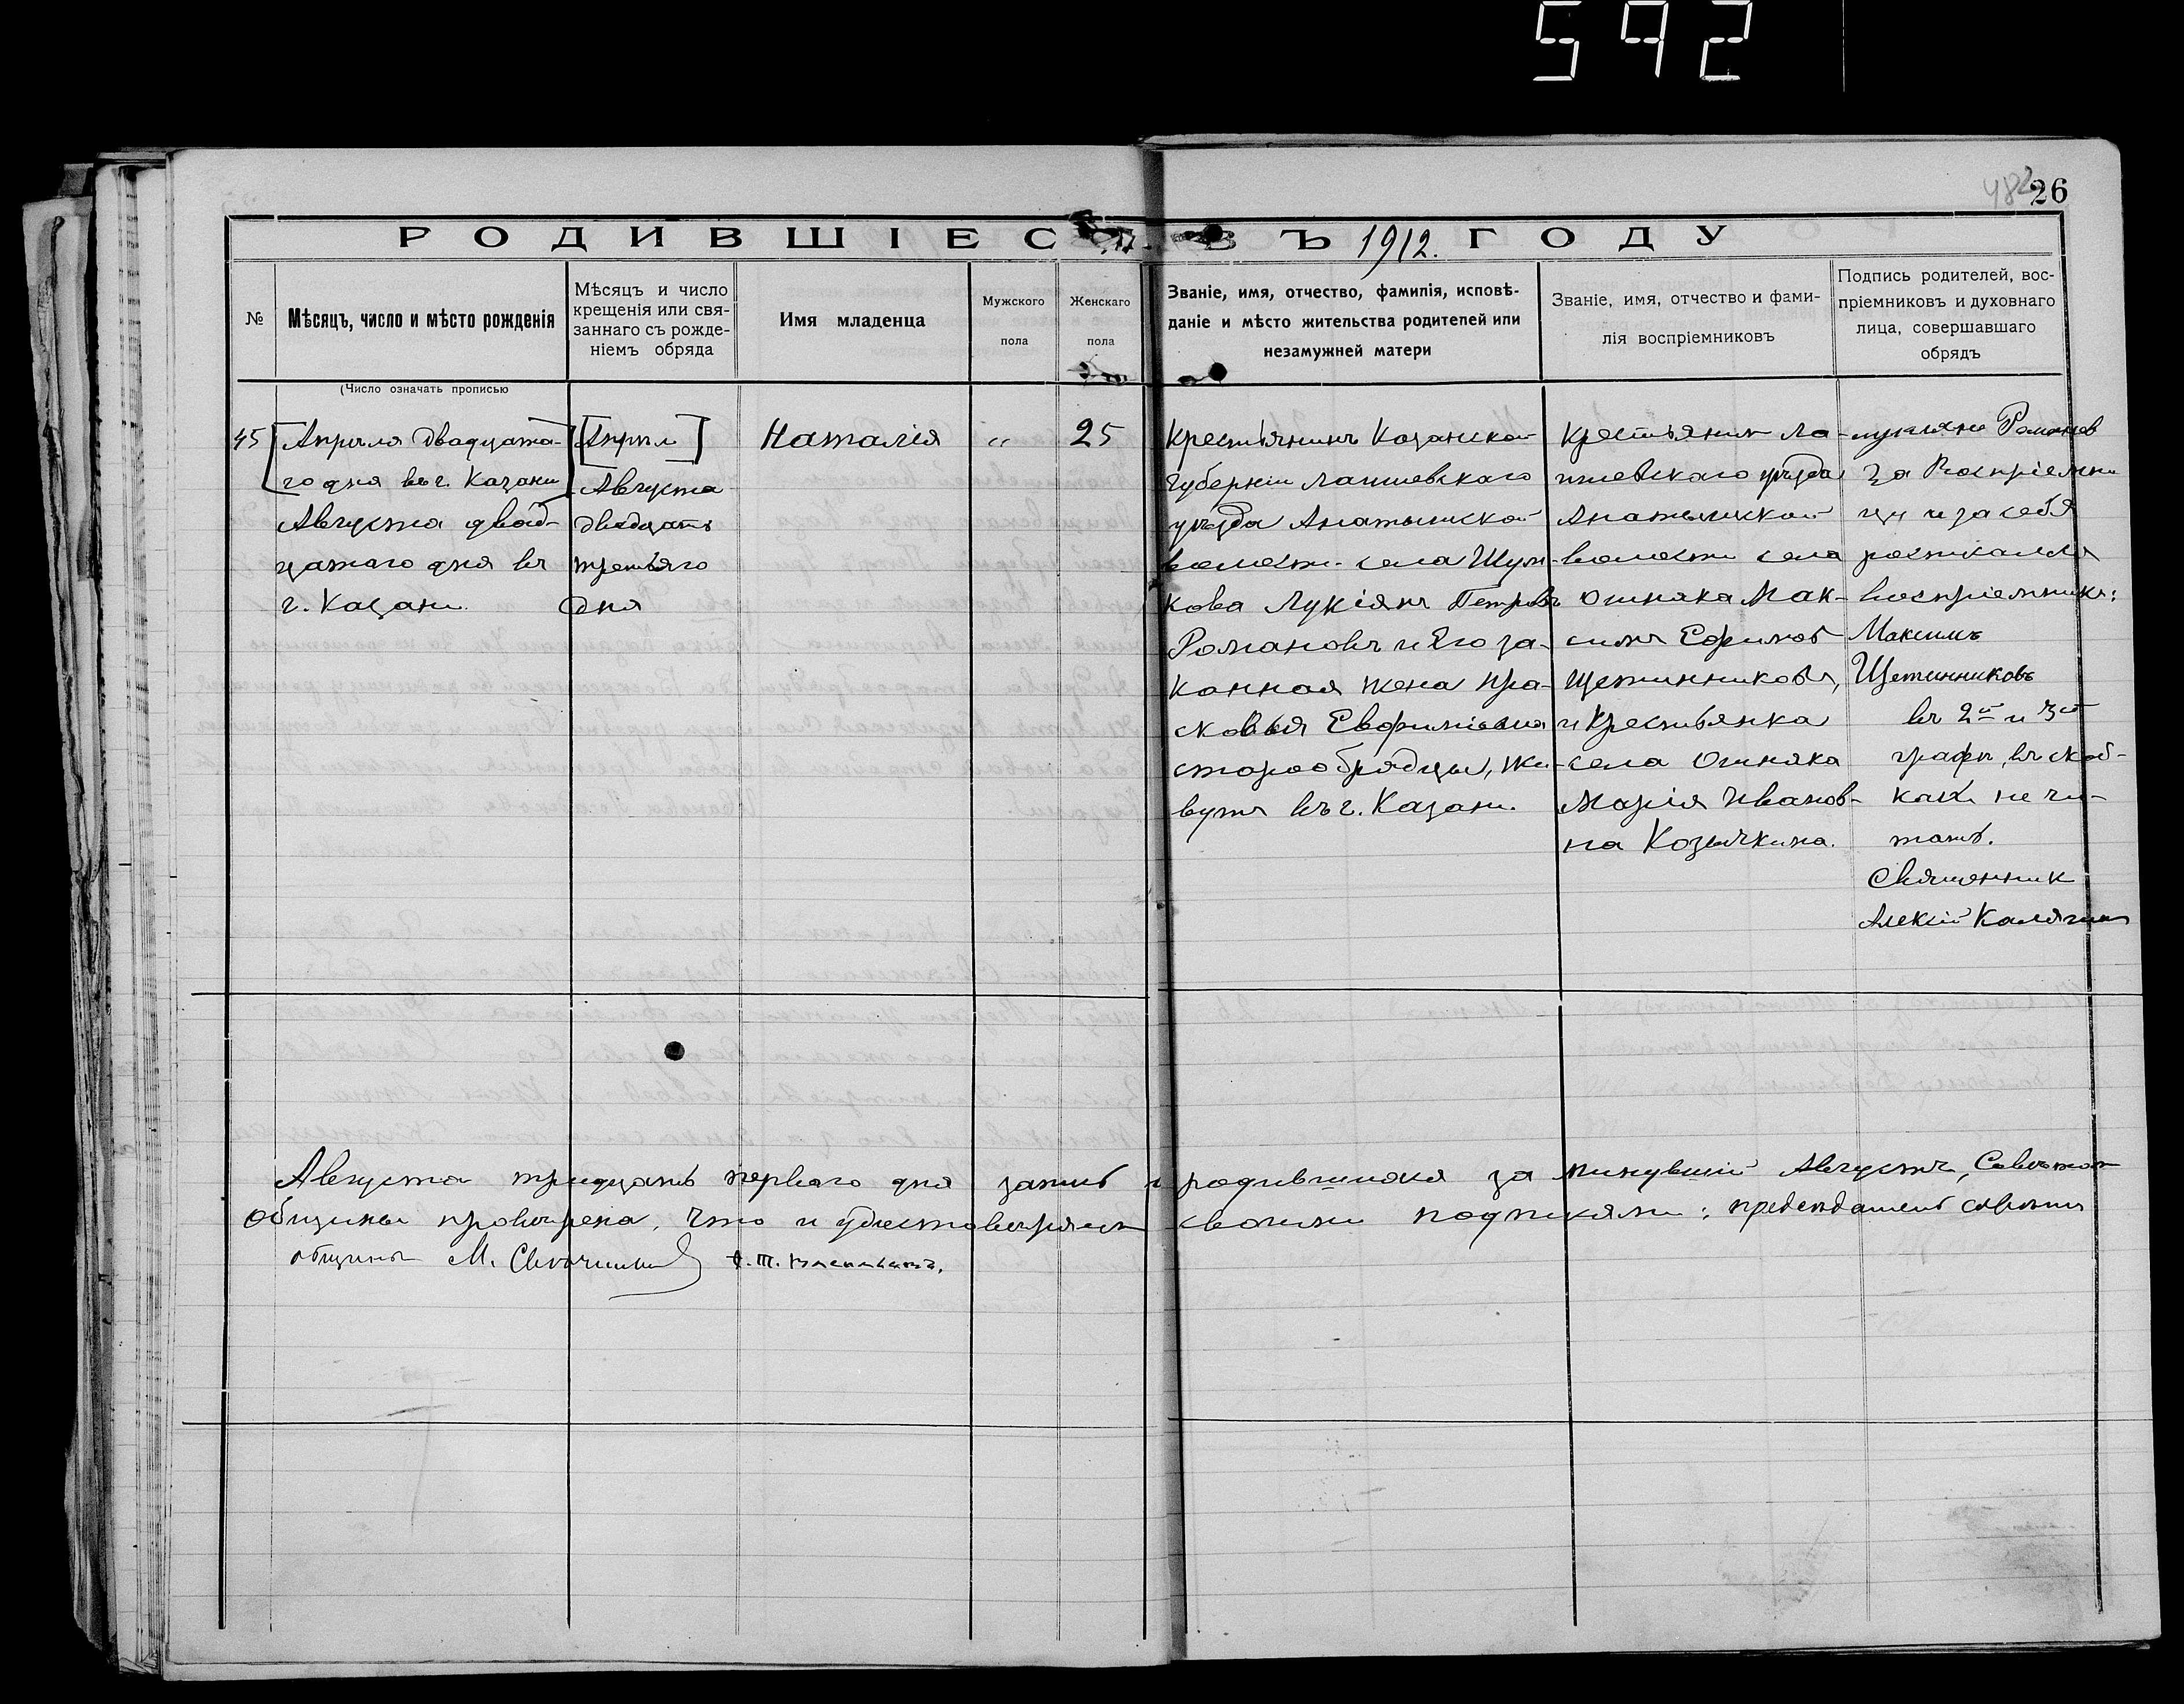 592
482
26
РОДИВШІЕСЯ ВЪ 1912. ГОДУ
№
Мѣсяцъ, число и мѣсто рожденія
Мѣсяцъ и число
крещенія или свя-
заннаго съ рожде-
ніемъ обряда
Имя младенца
Мужского
пола
Женскаго
пола
Званіе, имя, отчество, фамилія, исповѣ-
даніе и мѣсто жительства родителей или
незамужней матери
Званіе, имя, отчество и фами-
лія воспріемниковъ
Подпись родителей, вос-
пріемниковъ и духовнаго
лица, совершавшаго
обрядъ
(Число означать прописью
45
[Апрѣля двадцата-
го дня въ г. Казани]
Августа двад-
цатаго дня въ
г. Казани.
[Апрѣл]
Августа
двадцать
третьяго
дня
Наталія
"
25
Крестьянинъ Казанской
губерніи Лаишевскаго
уѣзда Анатышской
волости села Шум-
кова Лукіянъ Петровъ
Романовъ и его за-
конная жена Пра-
сковья Евфиміевна
старообрядцы, жи-
вутъ въ г. Казани.
Крестьянинъ Ла-
ишевскаго уѣзда
Анатышской
волости села
Ошняка Мак-
симъ Ефимов
Щетинниковъ,
и Крестьянка
села Ошняка
Марія Иванов-
на Козычкина.
Лукиянъ Романов
За Воспріемни
цу и за себя
росписался
воспріемникъ:
Максимъ
Щетинниковъ
въ 2й и 3й
графѣ, въ скоб-
кахъ не чи-
тать.
Священник
Алексій Калягинъ
Августа тридцать перваго дня запись о родившихся за минувшій Августъ, Совѣтом
общины провѣрена, что и удостовѣряем своими подписями: предсѣдатель совѣта
общины М.